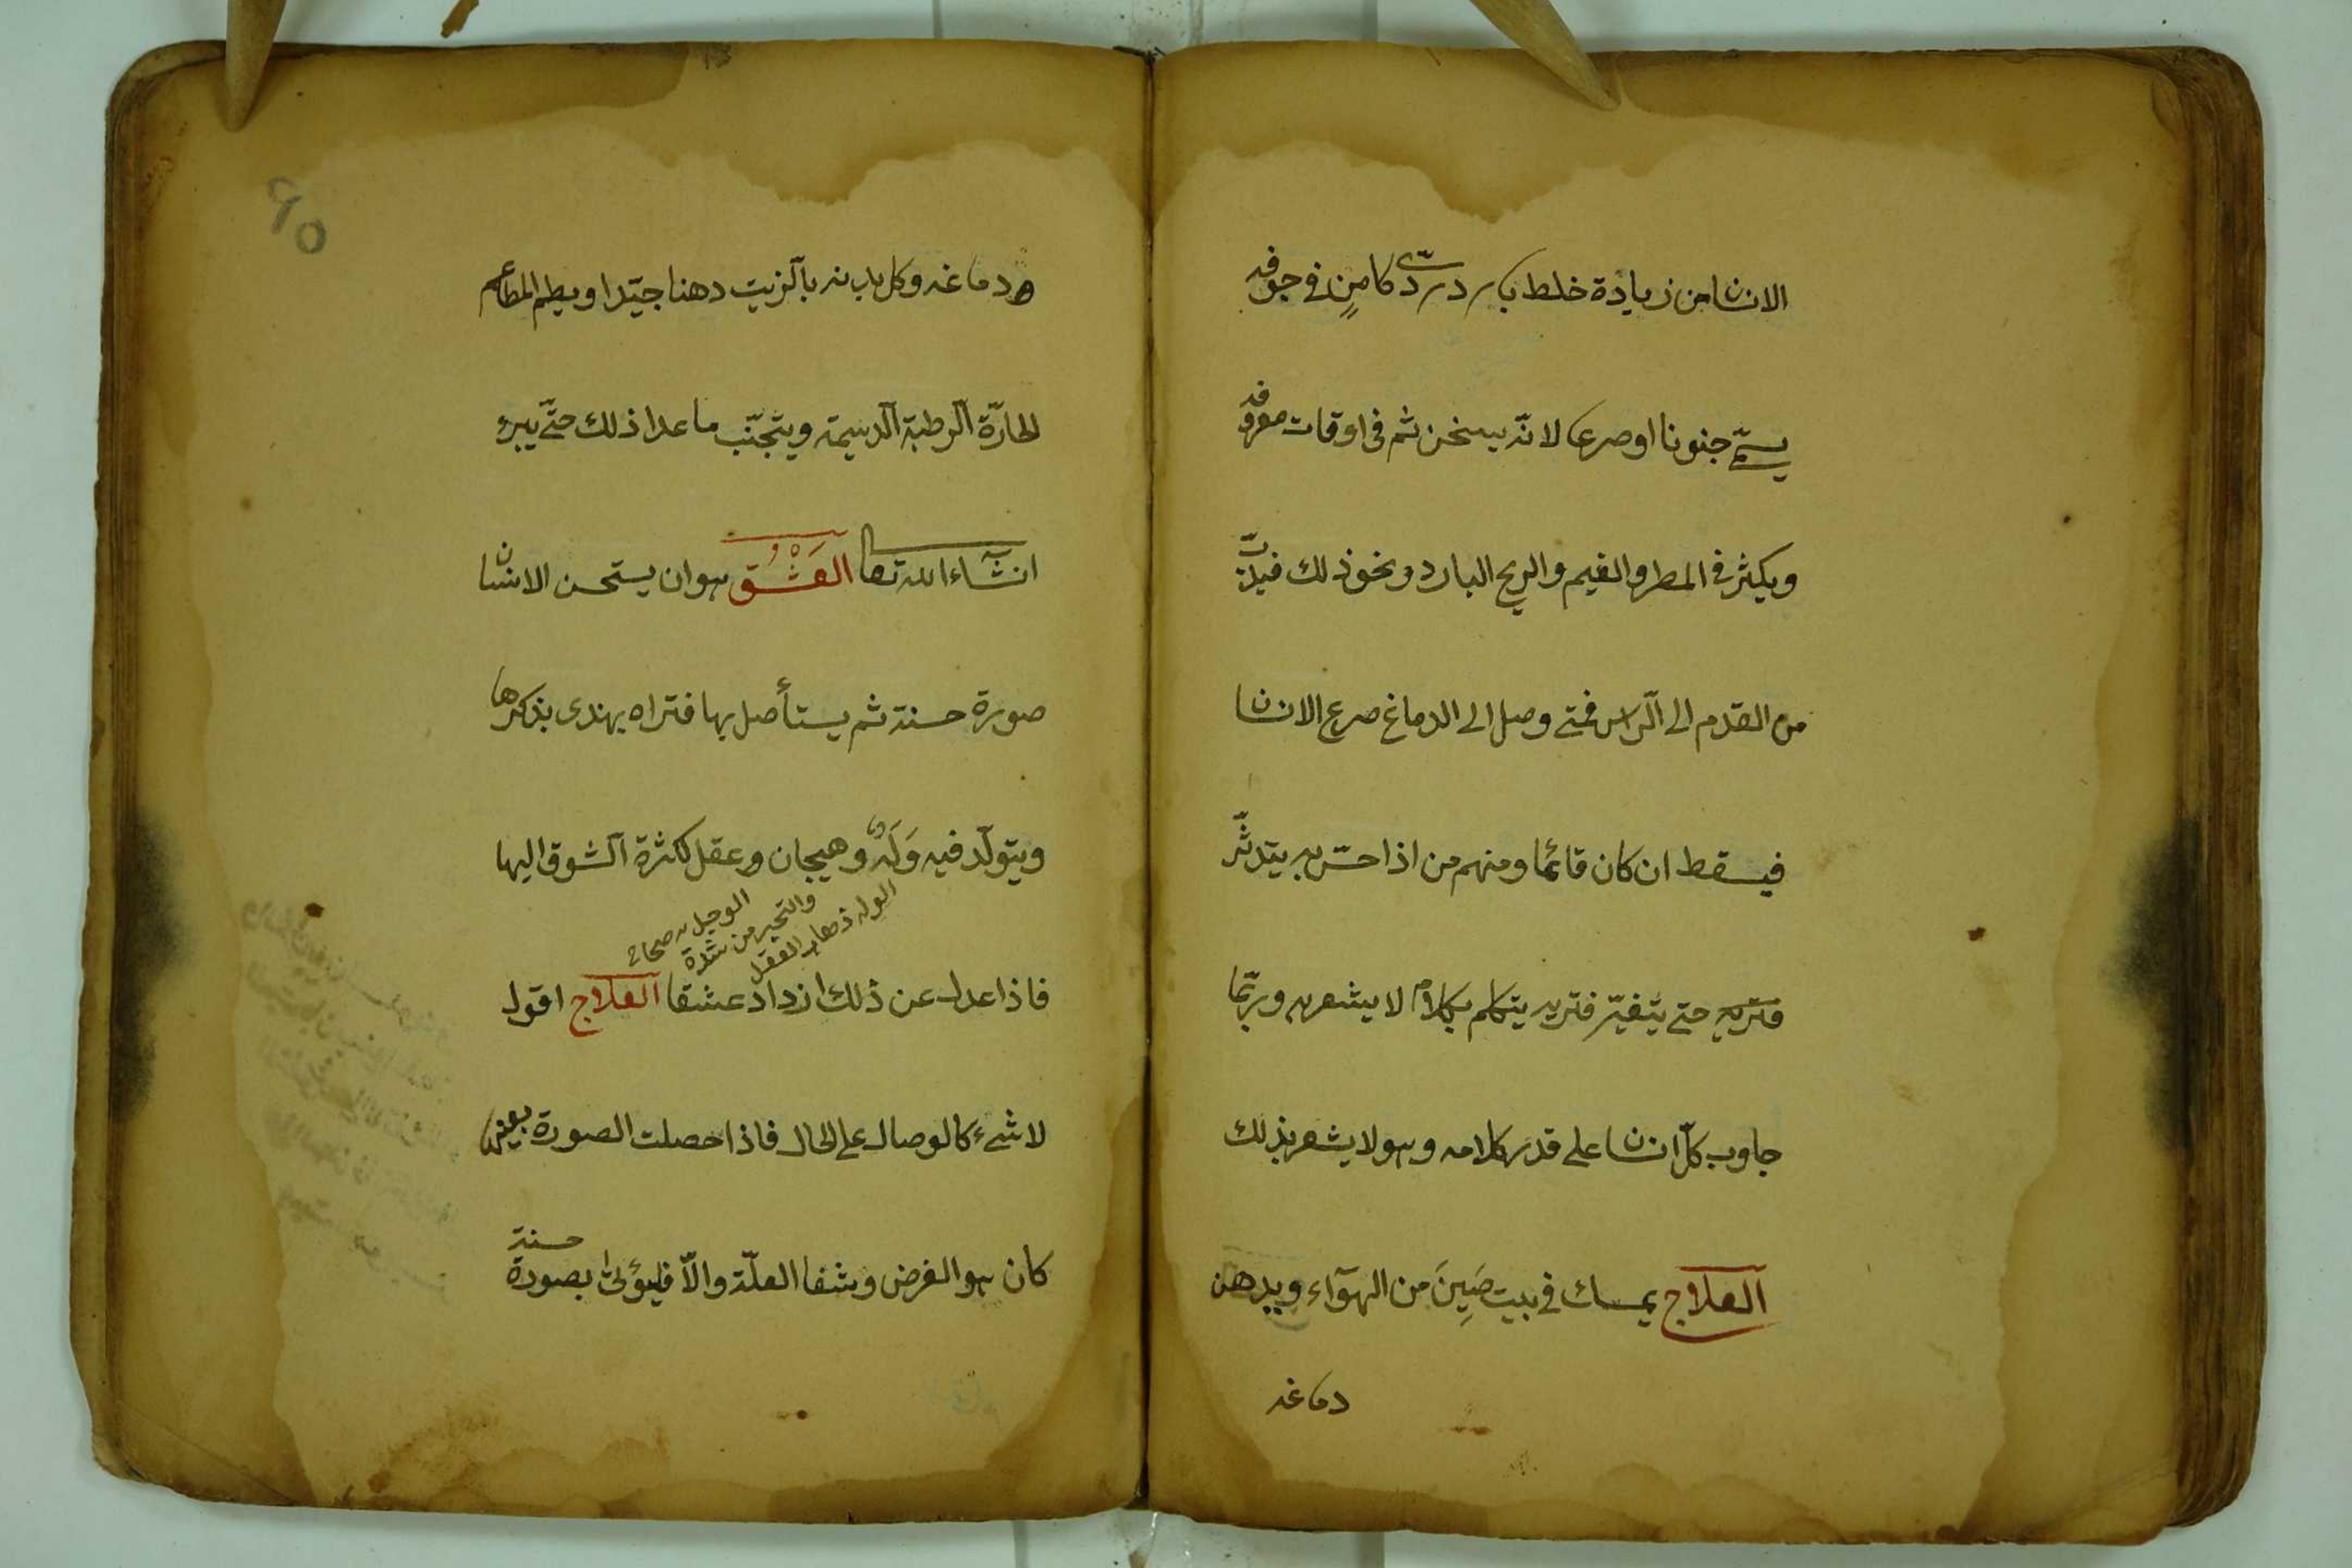 الانسان من زيادة خلط بارد ردىّ كامنٍ في جوفه
يسمّى جنونا او صرعا لانّه يسخن ثم فى اوقات معروفه
ويكثر فى المطر والغيم والريح البارد ونحو ذلك فيدبّ
من القدم الى الرّاس فمتى وصل الى الدماغ صرع الانسان
فيسقط ان كان قائما ومنهم من اذا حسّ به يتدثّر
فتريه حتى يتغيّر فتريه يتكلم بكلام لا يشعر به وربّما
جاوب كلّ انسان على قدر كلامه وهو لا يشعر بذلك
العلاج يمسك فى بيت صَيِنَ من الهوآء ويدهن
دماغه
٩٥
دماغه وكل بدنه بالزيت دهنا جيّدا ويطعم المطاعم
الحارّة الرطبة الدسيمة ويتجنّب ما عدا ذلك حتّى يبرء
انشآء الله تعالى العَشْقُ هو ان يستحسن الانسان
صورة حسنة ثم يستأصل بها فتراه يهذى بذكرها
ويتولّد فيه وَلَهٌ وهيجان وعقل لكثرة الشوق اليها
الوله ذهاب العقل
والتحير من شدة
الوجد صحاح
فاذا عدل عن ذلك ازداد عشقا العلاج اقول
لا شىء كالوصال على الحال فاذا حصلت الصورة بعينها
كان هو الغرض وشفا العلّة والاّ فليؤتى بصورة حسنة